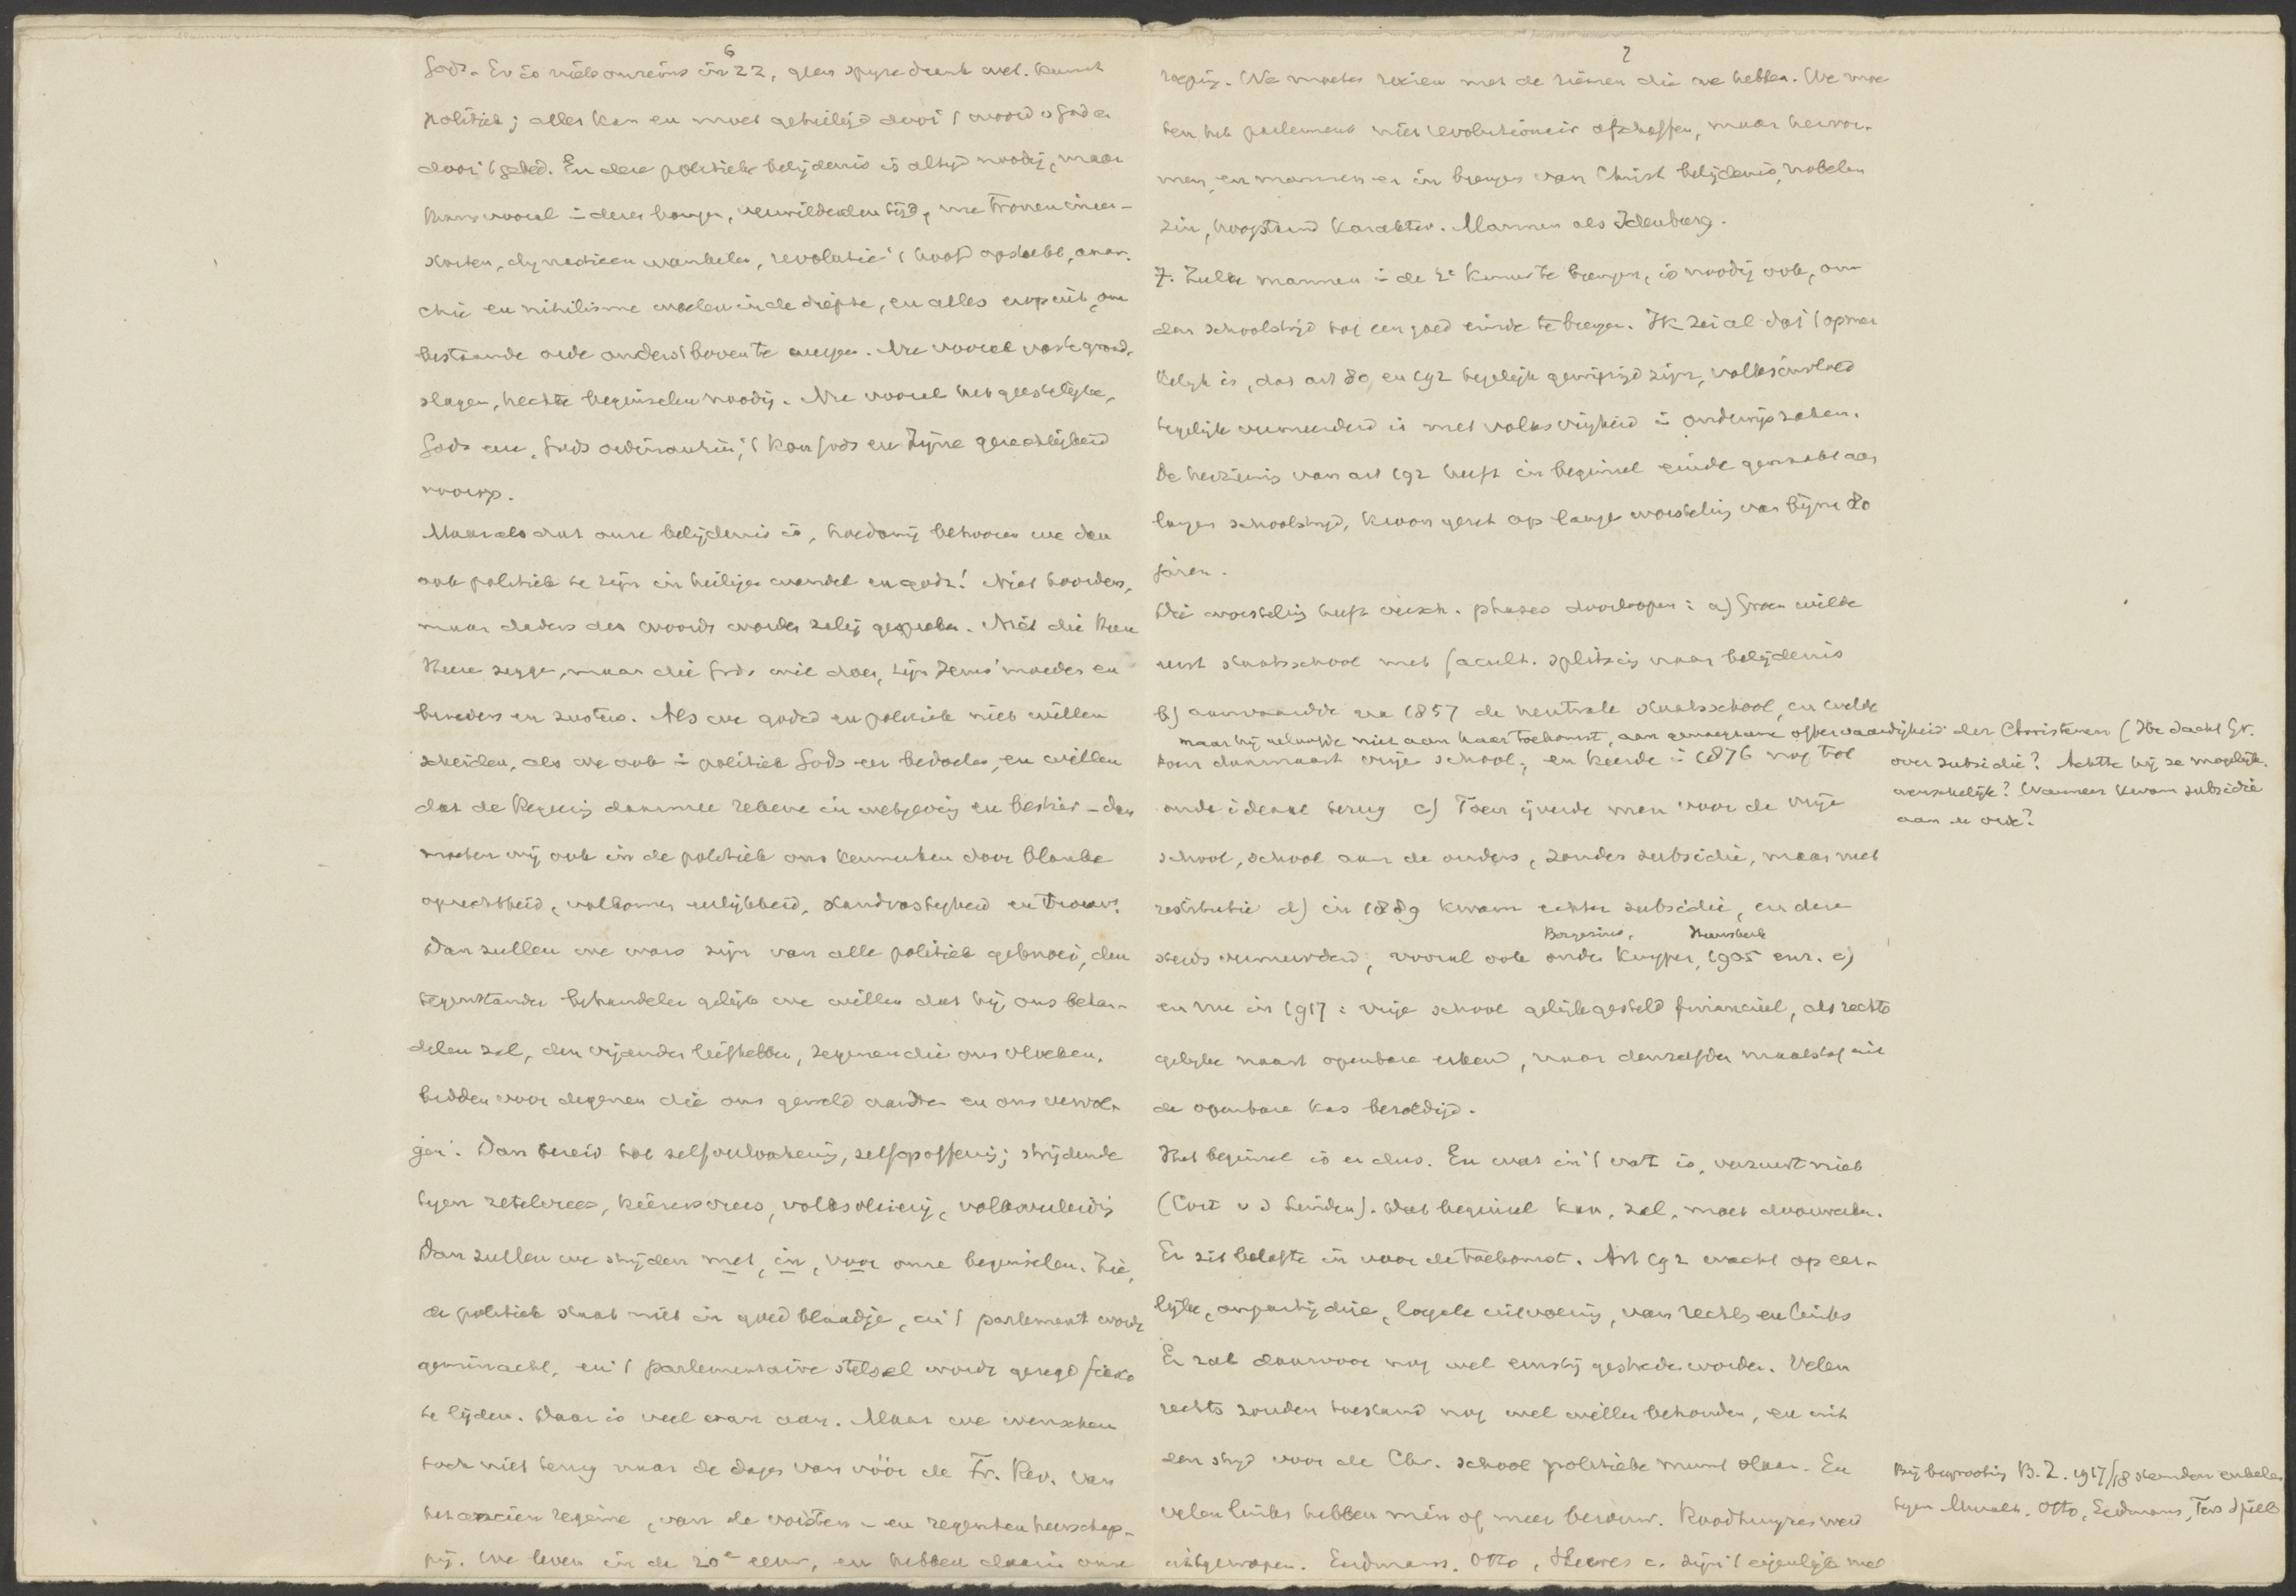 6
Gods. Er is niets onreins in zz, geen spijze drank wet. Kunst
politiek; alles kan en moet geheiligd door 't woord v God en
door 't gebed. En deze politieke belijdenis is altijd noodig, maar
thans vooral in dezen bangen, verwilderden tijd, nu tronen ineen-
storten, dynastieen wankelen, revolutie 't hoofd opsteekt, anar-
chie en nihilisme woelen in de diepte, en alles erop uit, om
bestaande orde onderstboven te werpen. Nu vooral vaste grond-
slagen, hechte beginselen noodig. Nu vooral het geestelijke,
Gods eer, Gods ordinantiën, 't Kon. Gods en Zijne gerechtigheid
voorop.
Maar als dat onze belijdenis is, hoedanig behooren we dan
ook politiek te zijn in heilige wandel en godz! Niet hoorders,
maar daders des woords worden zalig gesproken. Niet die Heere
Heere zeggen, maar die Gods wil doen, zijn Jezus' moeder en
broeders en zusters. Als we godsd en politiek niet willen
scheiden, als we ook in politiek Gods eer bedoelen, en willen
dat de Regeering daarmee rekene in wetgeving en bestier - dan
moeten wij ook in de politiek ons kenmerken door blanke
oprechtheid, volkomen eerlijkheid, standvastigheid en trouw.
Dan zullen we wars zijn van alle politiek geknoei, den
tegenstander behandelen gelijk we willen dat hij ons behan-
delen zal, den vijanden liefhebben, zegenen die ons vloeken,
bidden voor degenen die ons geweld aandoen en ons vervol-
gen. Dan bereid tot zelfverloochening, zelfopoffering; strijdende
tegen zetelvrees, kiezersvrees, volksvleierij, volksverleiding
Dan zullen we strijden met, in, voor onze beginselen. Zie,
de politiek staat niet in goed blaadje, en 't parlement wordt
geminacht, en 't parlementaire stelsel wordt gezegd fiasco
te lijden. Daar is veel van aan. Maar we wenschen
toch niet terug naar de dagen van vóór de Fr. Rev. van
het ancien regime, van de vorsten- en regentenheerschap-
pij. We leven in de 20e eeuw, en hebben daarin onze
7
roeping. We moeten roeien met de riemen die we hebben. We moe-
ten het parlement niet revolutionair afschaffen, maar hervor-
men, en mannen er in brengen van Christ belijdenis, nobelen
zin, hoogstaand karakter. Mannen als Idenburg.
7. Zulke mannen in de 2e Kamer te brengen, is noodig ook, om
den schoolstrijd tot een goed einde te brengen. Ik zei al dat 't opmer
kelijk is, dat art 80 en 192 tegelijk gewijzigd zijn, volksinvloed
tegelijk vermeerderd is met volksvrijheid in onderwijszaken.
De herziening van art 192 heeft in beginsel einde gemaakt aan
langen schoolstrijd, kwam eerst op lange worsteling van bijna 80
jaren.
Die worsteling heeft versch. phases doorloopen: a) Groen wilde
eerst staatsschool met facult. splitsing naar belijdenis
b) aanvaardde na 1857 de neutrale staatsschool, en wilde
maar hij geloofde niet aan haar toekomst, aan genoegzame offervaardigheid der Christenen (Hoe dacht Gr.
over subsidie? Achtte hij ze mogelijk.
wenschelijk? Wanneer kwam subsidie
aan de orde?
toen daarnaast vrije school, en keerde in 1876 nog tot
oude ideaal terug c) Toen ijverde men voor de vrije
school, school aan de ouders, zonder subsidie, maar met
restitutie d) in 1889 kwam echter subsidie, en deze
Borgesius, Heemskerk
steeds vermeerderd, vooral ook onder Kuyper, 1905 enz. e)
en nu in 1917: vrije school gelijkgesteld financieel, als rechts
gelijke naast openbare erkend, naar denzelfden maatstaf uit
de openbare kas bezoldigd.
Het beginsel is er dus. En wat in 't vat is, verzuurt niet
(Cort v d Linden). Dat beginsel kan, zal, moet doorwerken.
Er zit belofte in voor de toekomst. Art 192 wacht op eer-
lijke, onpartijdige, loyale uitvoering, van rechts en links
Er zal daarvoor nog wel ernstig gestreden worden. Velen
rechts zouden toestand nog wel willen behouden, en uit
den strijd voor de Chr. school politieke munt slaan. En
velen links hebben min of meer berouw. Roodhuyzen werd
uitgeworpen. Eerdmans, Otto, Heeres c. zijn 't eigenlijk niet
Bij begrooting B.Z. 1917/18 stemden enkelen
tegen. Otto, Eerdmans, Ter Spill